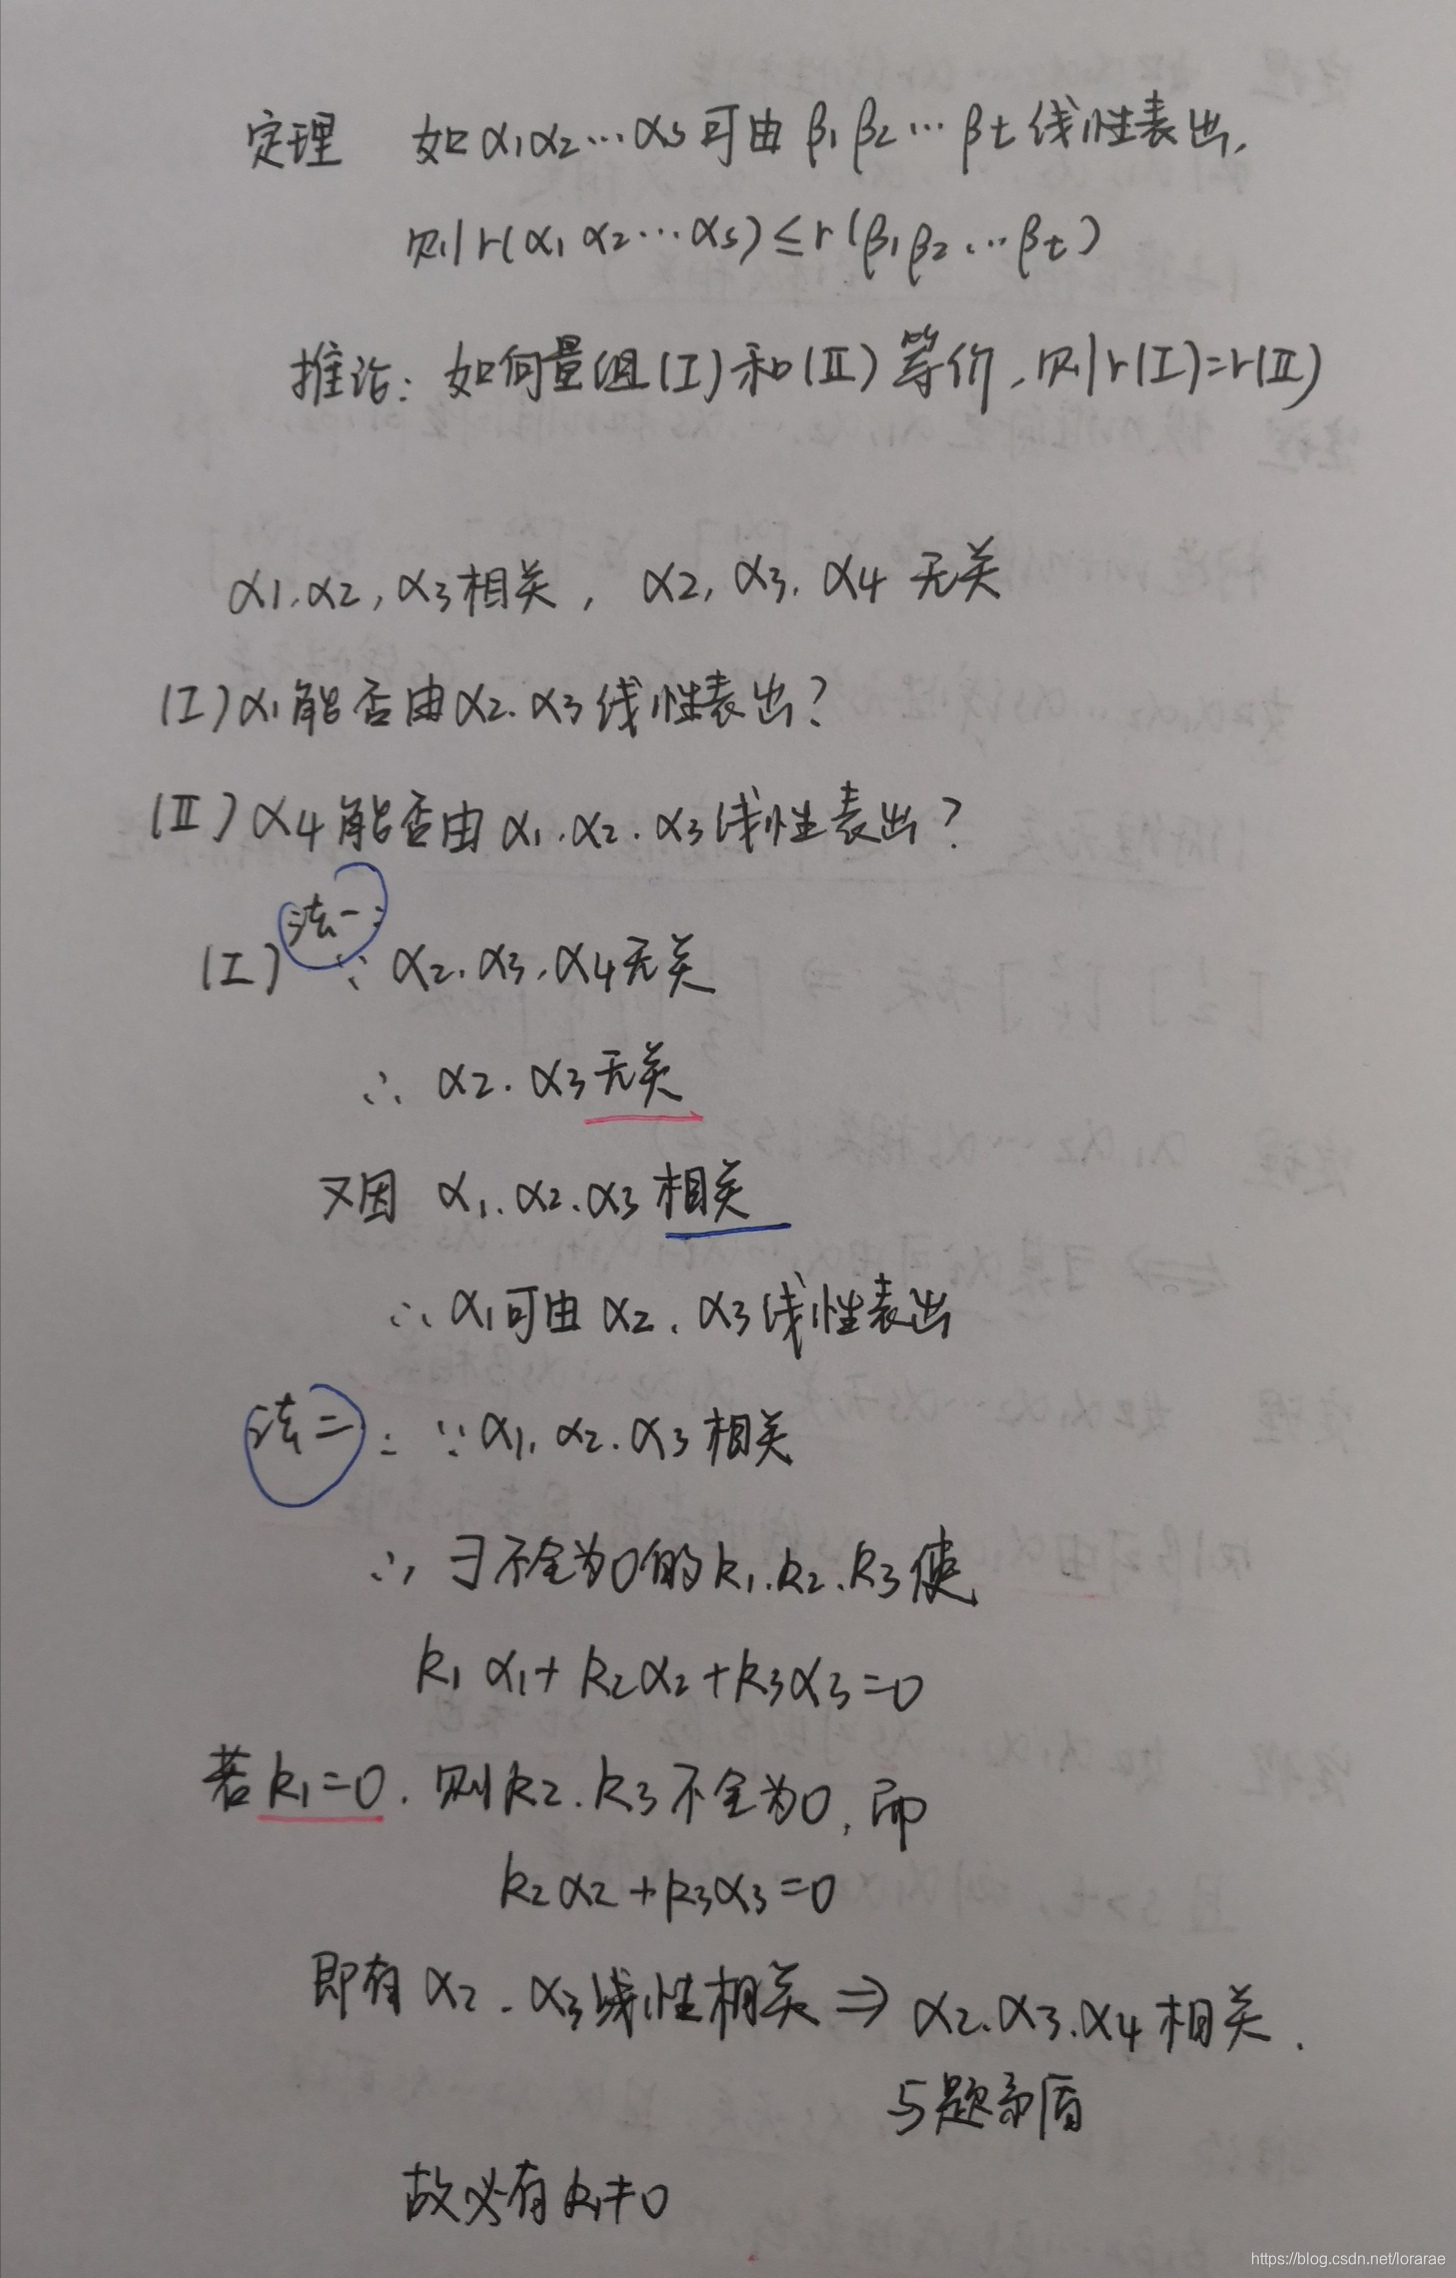 定理 如α1α2…αs可由β1β2…βt线性表出,
则r(α1α2…αs)≤r(β1β2…βt)
推论：如向量组(I)和(II)等价,则r(I)=r(II)
α1,α2,α3相关, α2,α3,α4无关
(I)α1能否由α2.α3线性表出?
(II)α4能否由α1.α2.α3线性表出?
法一:
(I) ∵ α2.α3.α4无关
∴ α2.α3无关
又因 α1.α2.α3相关
∴ α1可由α2.α3线性表出
法二: ∵ α1.α2.α3相关
∴ ∃不全为0的k1.k2.k3使
k1α1+k2α2+k3α3=0
若k1=0.则k2.k3不全为0,即
k2α2+k3α3=0
即有α2.α3线性相关⇒α2.α3.α4相关.
与题矛盾
故必有k1≠0
https://blog.csdn.net/lorarae